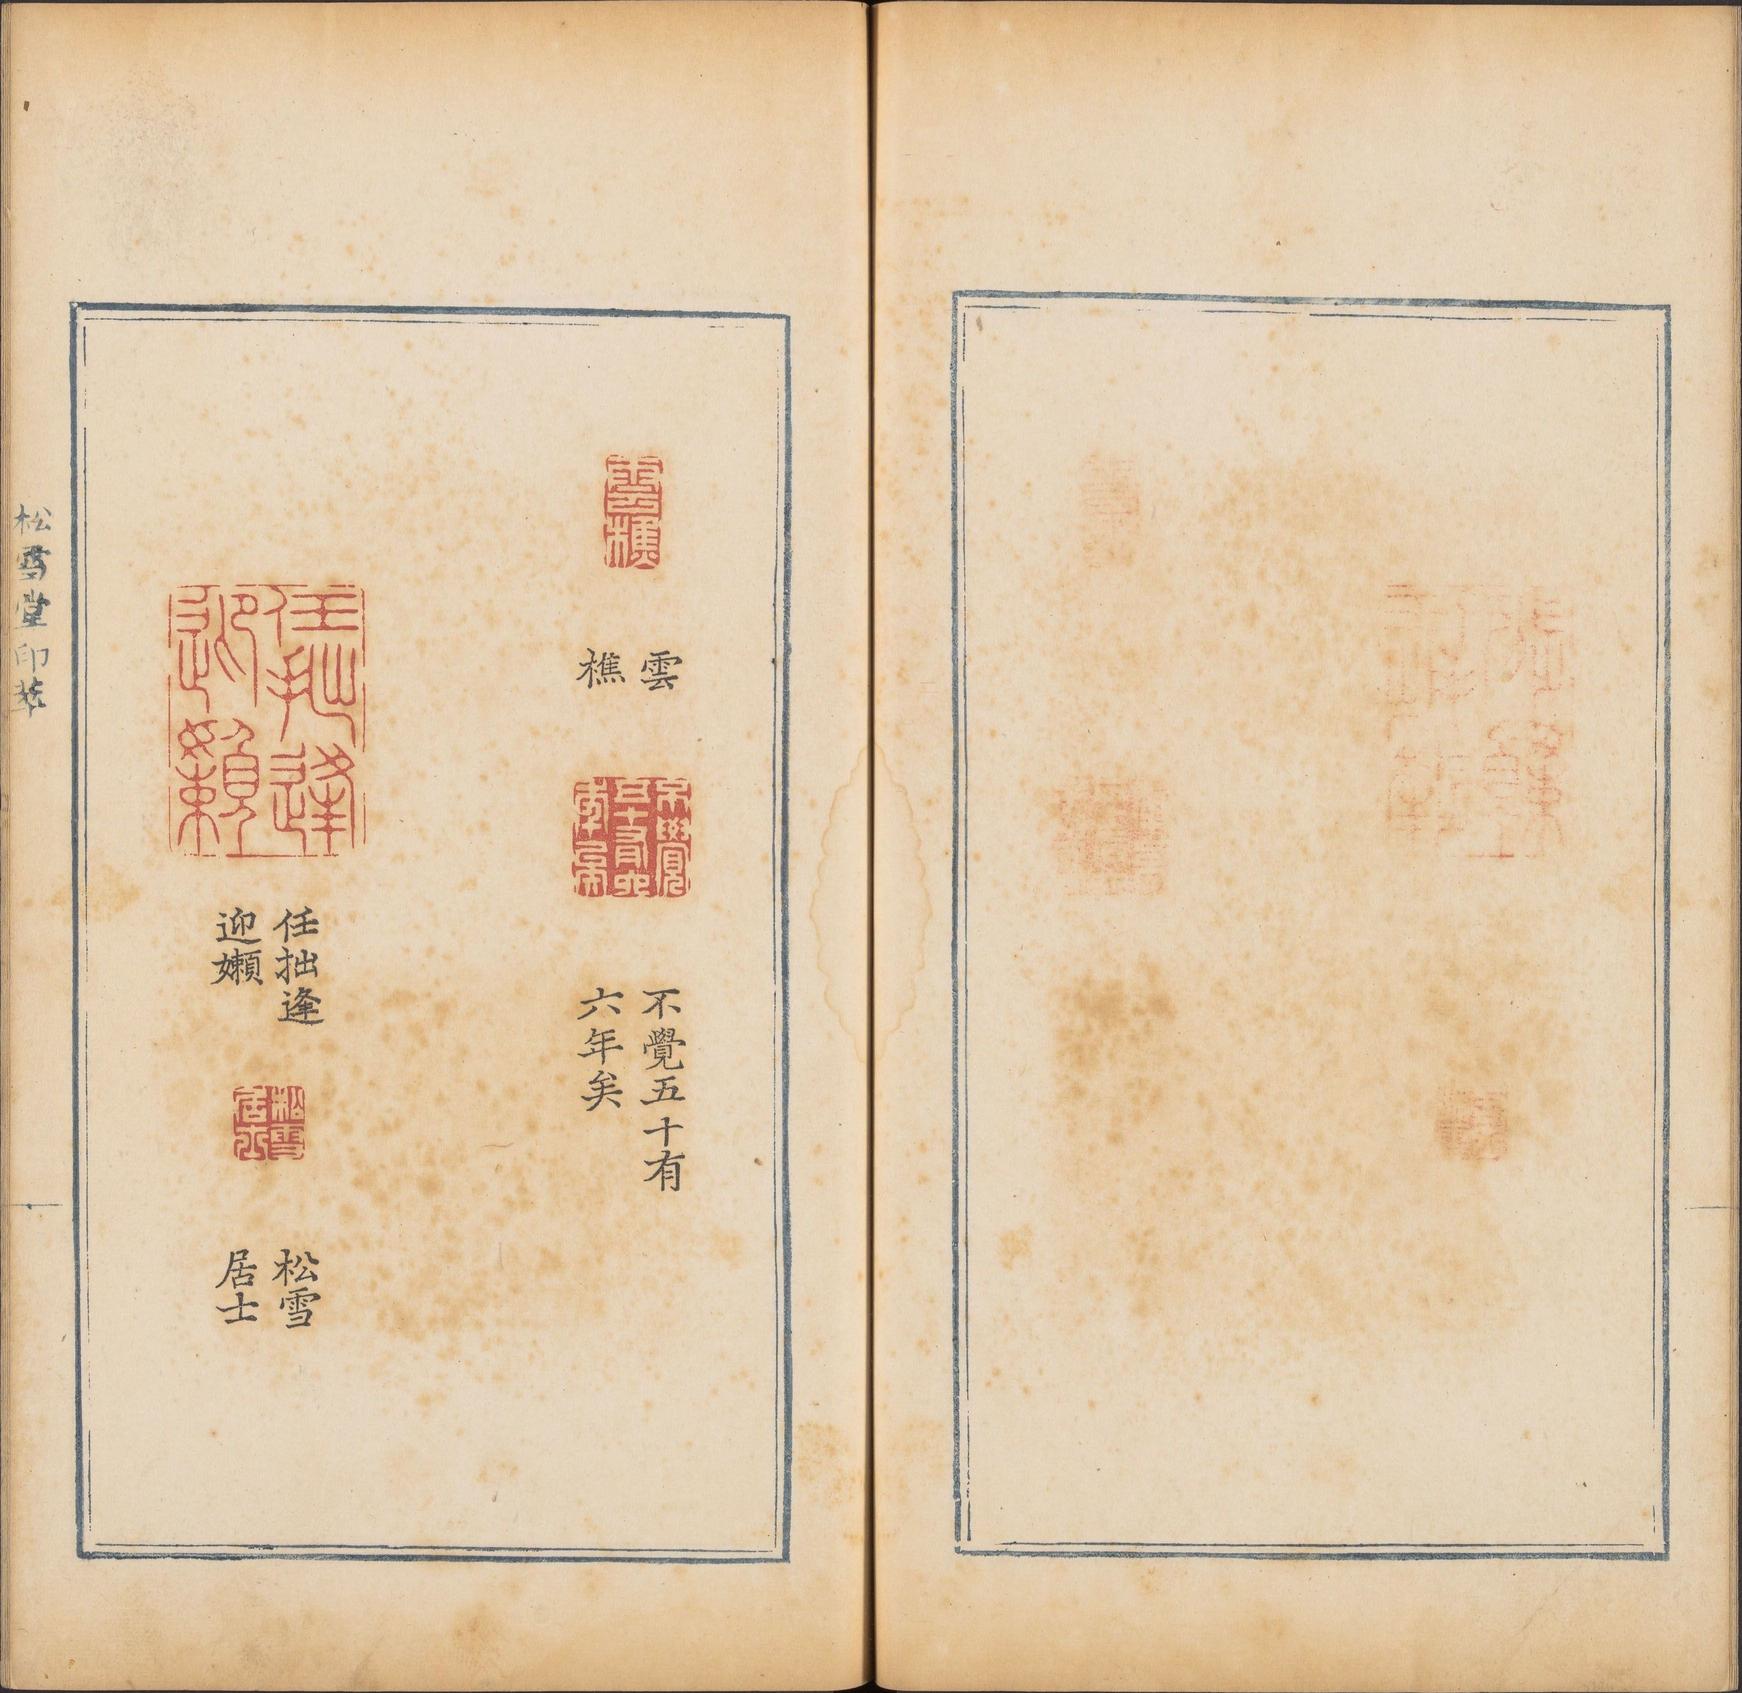 雲樵
雲
樵
不覺五十有六年矣
不覺五十有
六年矣
任拙逢迎嬾
任拙逢
迎嬾
松雪居士
松雪
居士
松雪堂印萃